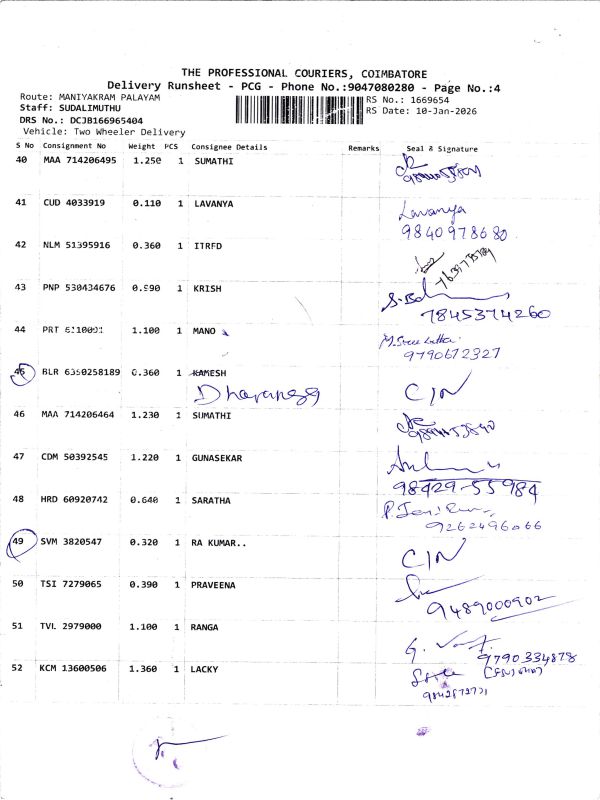 THE PROFESSIONAL COURIERS, COIMBATORE
Delivery Runsheet - PCG - Phone No.:9047080280 - Page No.:4
Route: MANIYAKRAM PALAYAM
Staff: SUDALIMUTHU
DRS No.: DCJB166965404
Vehicle: Two Wheeler Delivery
RS No.: 1669654
RS Date: 10-Jan-2026
S No Consignment No Weight PCS Consignee Details Remarks Seal & Signature
40 MAA 714206495 1.250 1 SUMATHI
41 CUD 4033919 0.110 1 LAVANYA Lavanya
9840978680
42 NLM 51395916 0.360 1 ITRFD
43 PNP 530434676 0.590 1 KRISH
7845374260
44 PRT 1.100 1 MANO
9790672327
45 BLR 6350258189 0.360 1 KAMESH C/N
46 MAA 714206464 1.230 1 SUMATHI
47 CDM 50392545 1.220 1 GUNASEKAR
98429-55984
48 HRD 60920742 0.640 1 SARATHA
9262496066
49 SVM 3820547 0.320 1 RA KUMAR.. C/N
50 TSI 7279065 0.390 1 PRAVEENA
9489000902
51 TVL 2979000 1.100 1 RANGA
9790334878
52 KCM 13600506 1.360 1 LACKY